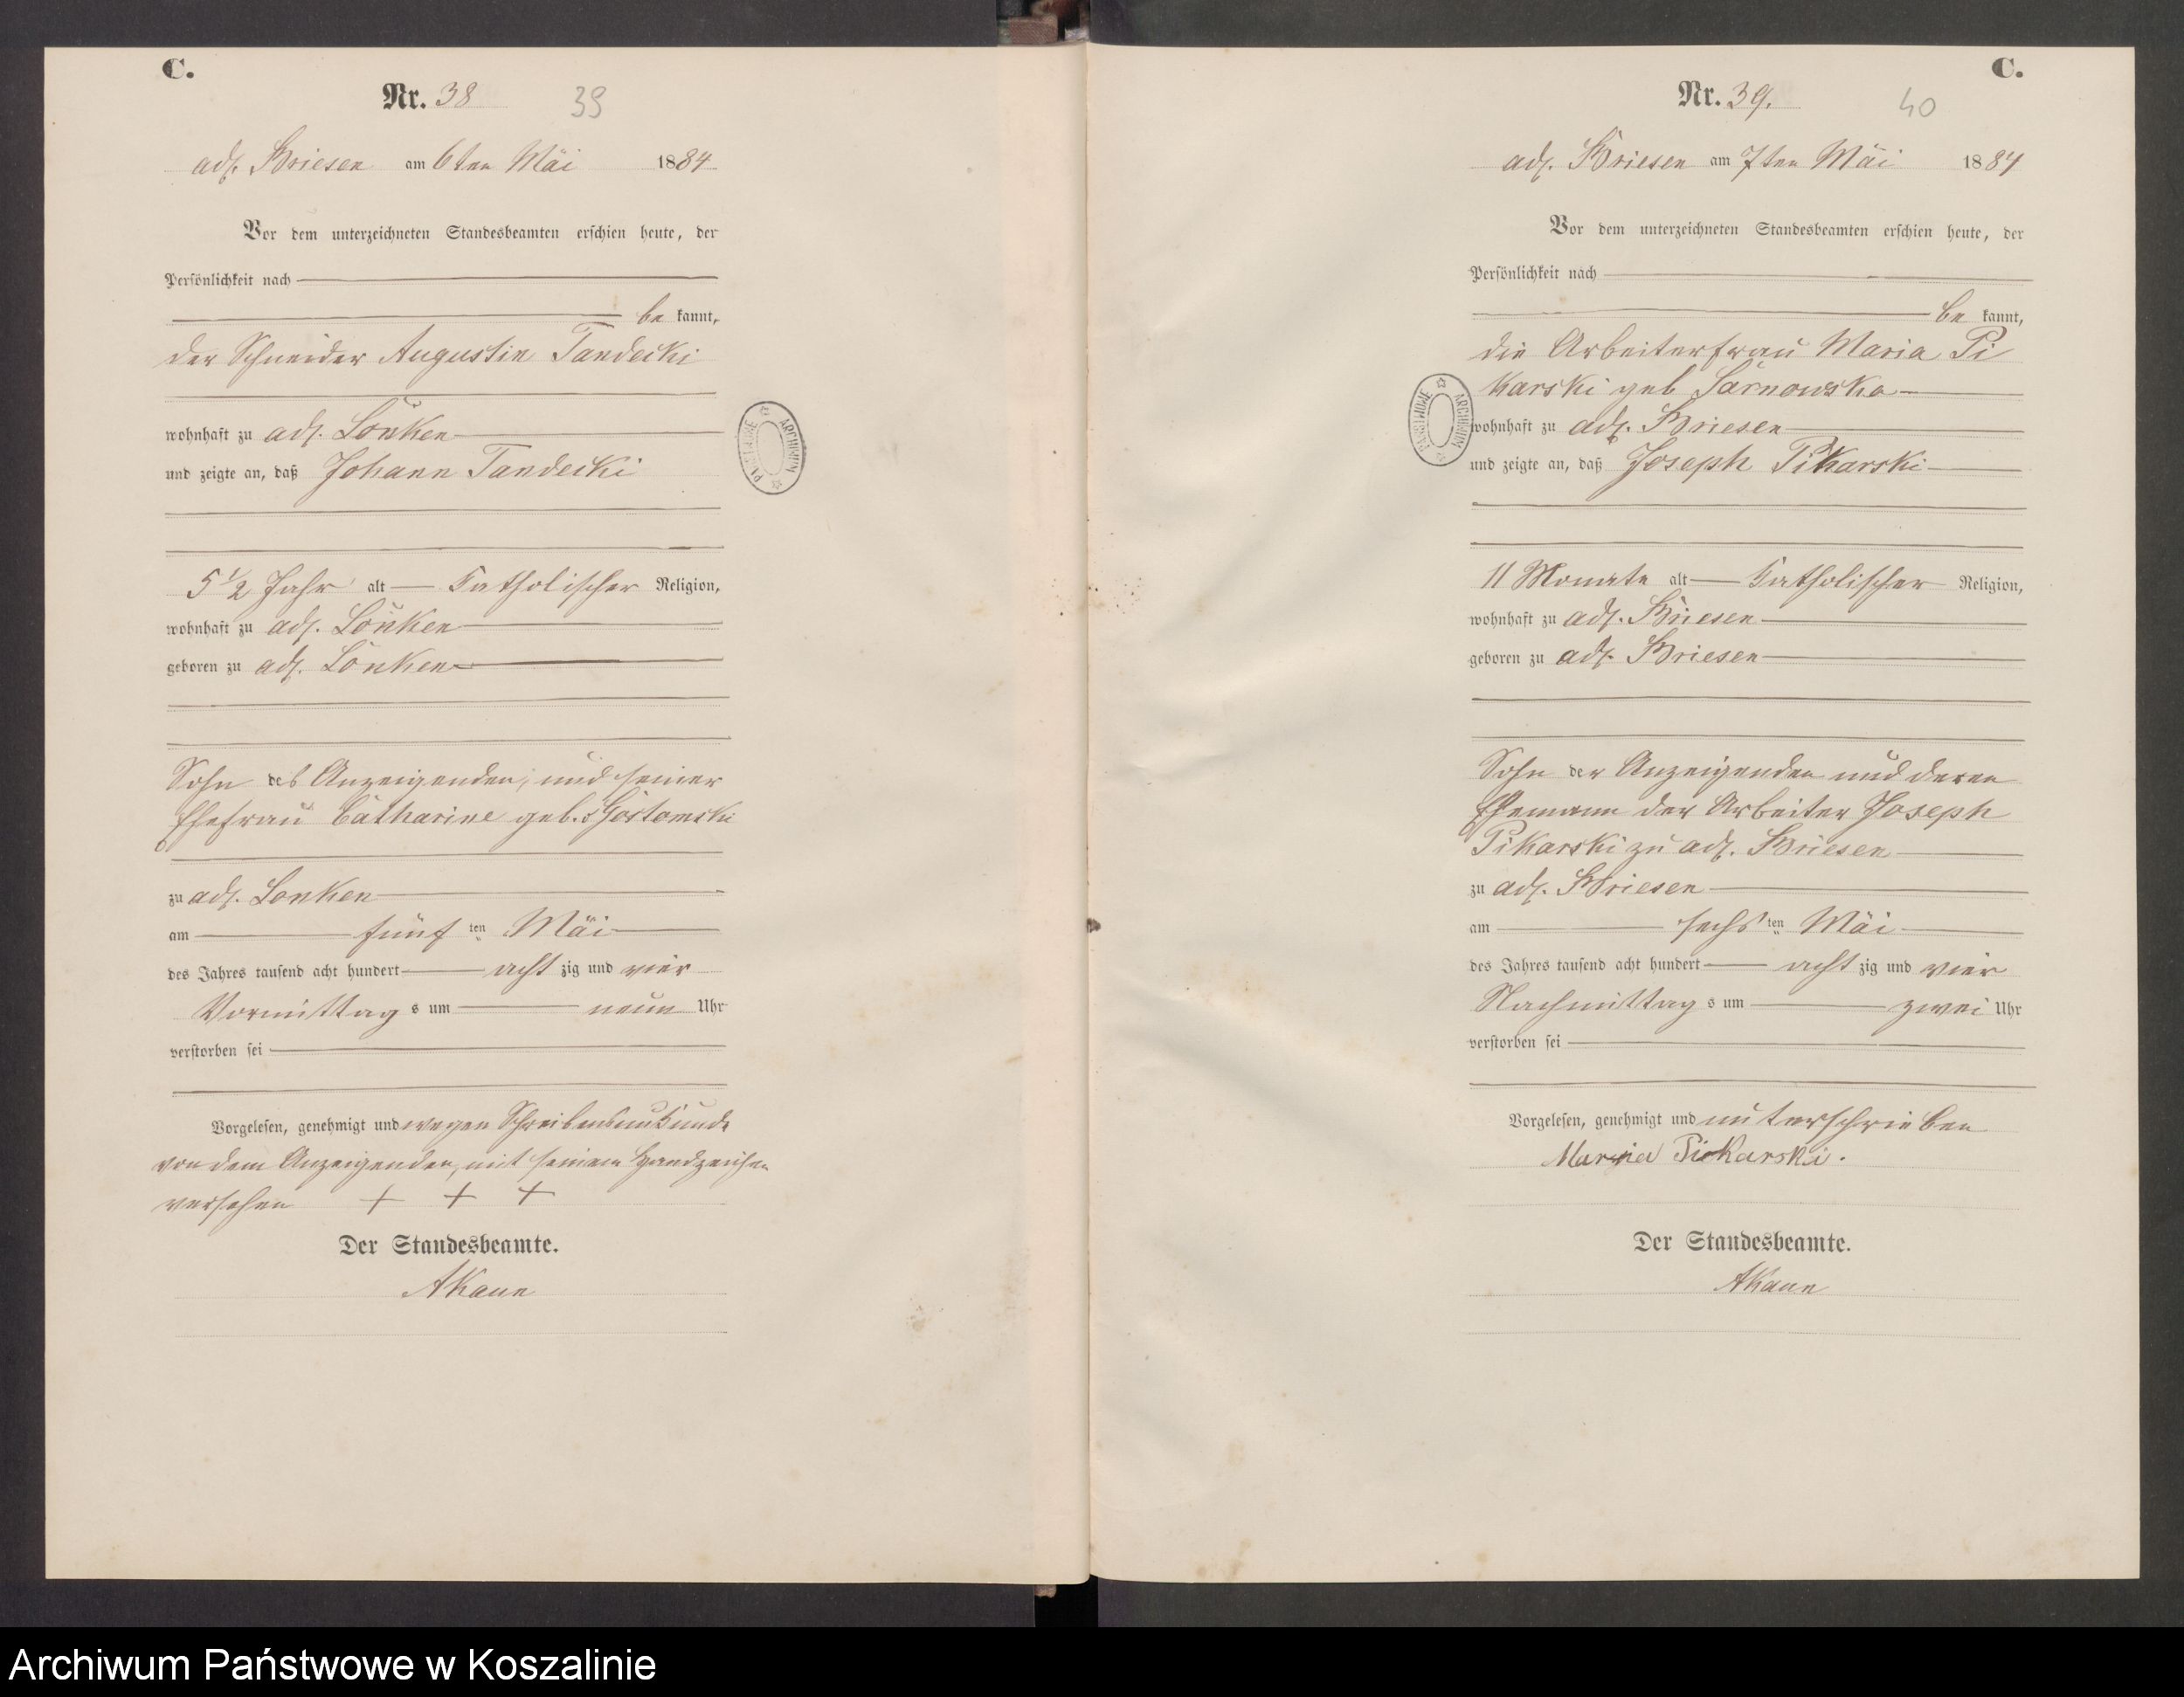 C.
Nr. 38
39
adl. Briesen am 6ten Mai 1884
Vor dem unterzeichneten Standesbeamten erschien heute, der
Persönlichkeit nach
be kannt,
der Schneider Augustin Tandecki
wohnhaft zu adl. Lonken
und zeigte an, daß Johann Tandecki
5 1/2 Jahr alt Katholischer Religion,
wohnhaft zu adl. Lonken
geboren zu adl. Lonken
Sohn des Anzeigenden, und seiner
Ehefrau Catharine geb. Gostomski
zu adl. Lonken
am fünf ten Mai
des Jahres tausend acht hundert acht zig und vier
Vormittag s um neun Uhr
verstorben sei
Vorgelesen, genehmigt und wegen Schreibensunkunde
von dem Anzeigenden, mit seinem Handzeichen
versehen + + +
Der Standesbeamte.
AKaun
ARCHIWUM PAŃSTWOWE
C.
Nr. 39.
40
adl. Briesen am 7ten Mai 1884
Vor dem unterzeichneten Standesbeamten erschien heute, der
Persönlichkeit nach
be kannt,
die Arbeiterfrau Maria Pi
karski geb Sarnowska
wohnhaft zu adl. Briesen
und zeigte an, daß Joseph Pikarski
11 Monate alt Katholischer Religion,
wohnhaft zu adl. Briesen
geboren zu adl. Briesen
Sohn der Anzeigenden und deren
Ehemann der Arbeiter Joseph
Pikarski zu adl. Briesen
zu adl. Briesen
am sechs ten Mai
des Jahres tausend acht hundert acht zig und vier
Nachmittag s um zwei Uhr
verstorben sei
Vorgelesen, genehmigt und unterschrieben
Maria Piekarski.
Der Standesbeamte.
AKaun
ARCHIWUM PAŃSTWOWE
Archiwum Państwowe w Koszalinie